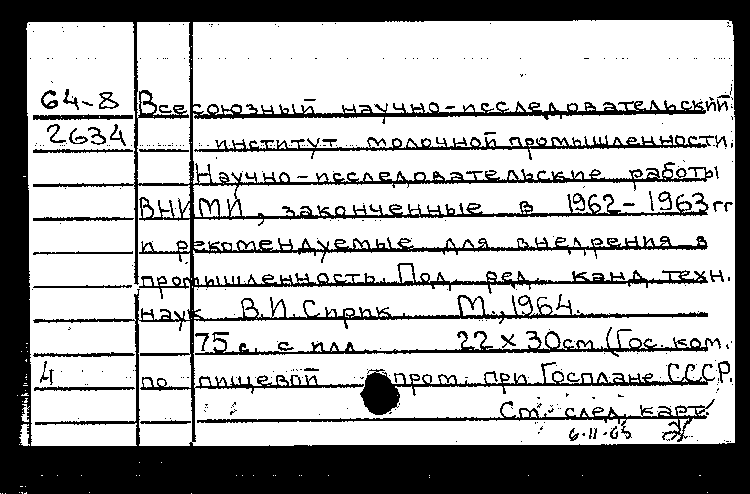 64-8 Всесоюзный научно-исследовательский
2634 институт молочной промышленности.
Научно-исследовательские работы
ВНИМИ, законченные в 1962-1963 гг
и рекомендуемые для внедрения в
промышленность. Под ред. канд. техн.
наук В.И. Сирик. М., 1964.
75 с. с илл. 22 x 30 см. (Гос. ком.
4 по пищевой пром. при Госплане СССР.
См. след. карт.
6-11-65